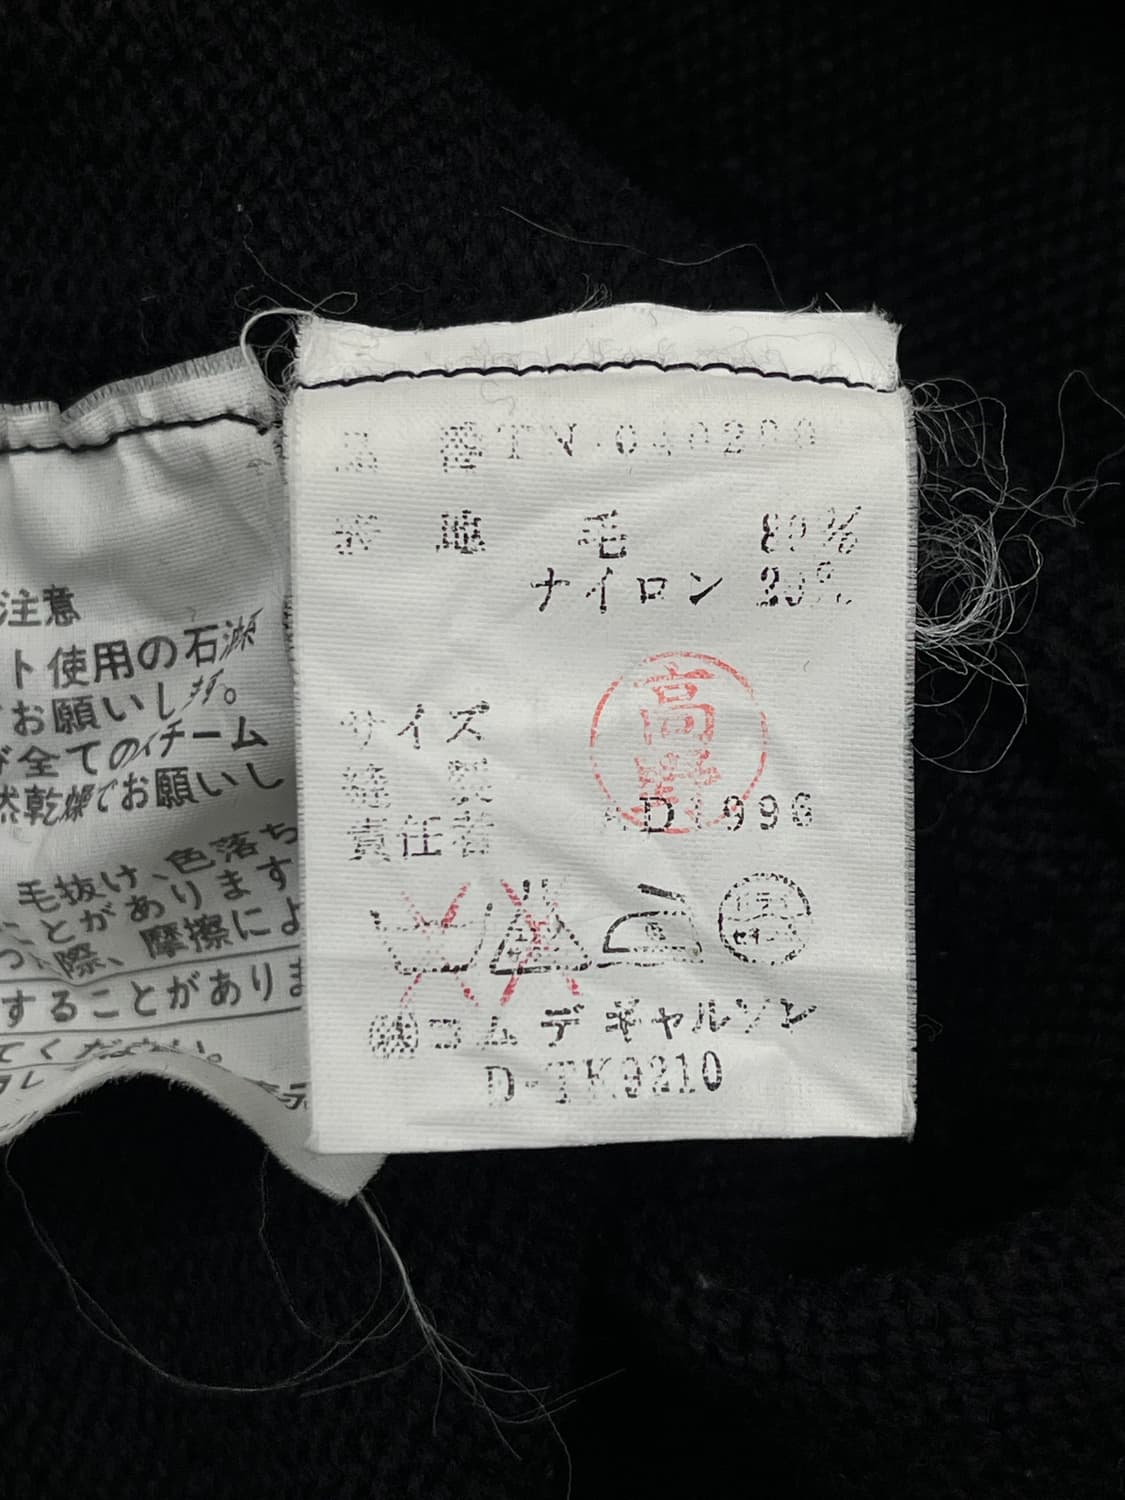 注意
ト使用の石
お願いします。
び全てのイチーム
然乾燥でお願いし
毛抜け、色落ち
ことがあります
際、摩擦によ
することがありま
てください。
品 番 TN-040200
表 地 毛 80%
ナイロン 20%
高野
サイズ
縫製
責任者 AD1996
㈱コムデギャルソン
D-TK9210